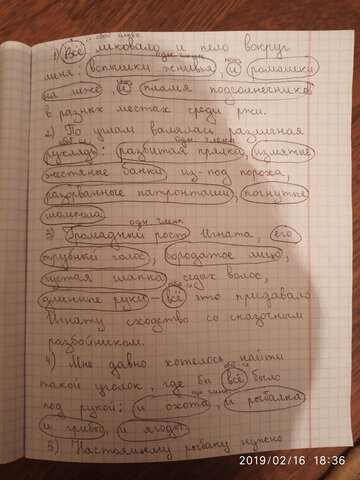 обог. слово
1) Всё ликовало и пело вокруг
одн. члены
меня: вспышки жнивья, и ромашки
на меже, и пламя подсолнечника
в разных местах среди ржи.
2) По углам валялась различная
одн. члены
рухлядь: разбитая прялка, измятые
жестяные банки из-под пороха,
разорванные патронташи, погнутые
шомпола.
одн. члены
3) Громадный рост Игната, его
трубный голос, бородатое лицо,
густая шапка седых волос,
длинные руки — всё это придавало
Игнату сходство со сказочным
разбойником.
4) Мне давно хотелось найти
такой уголок, где бы всё было
под рукой: и охота, и рыбалка,
и грибы, и ягоды.
5) Настоящему рыбаку нужно
2019/02/16 18:36